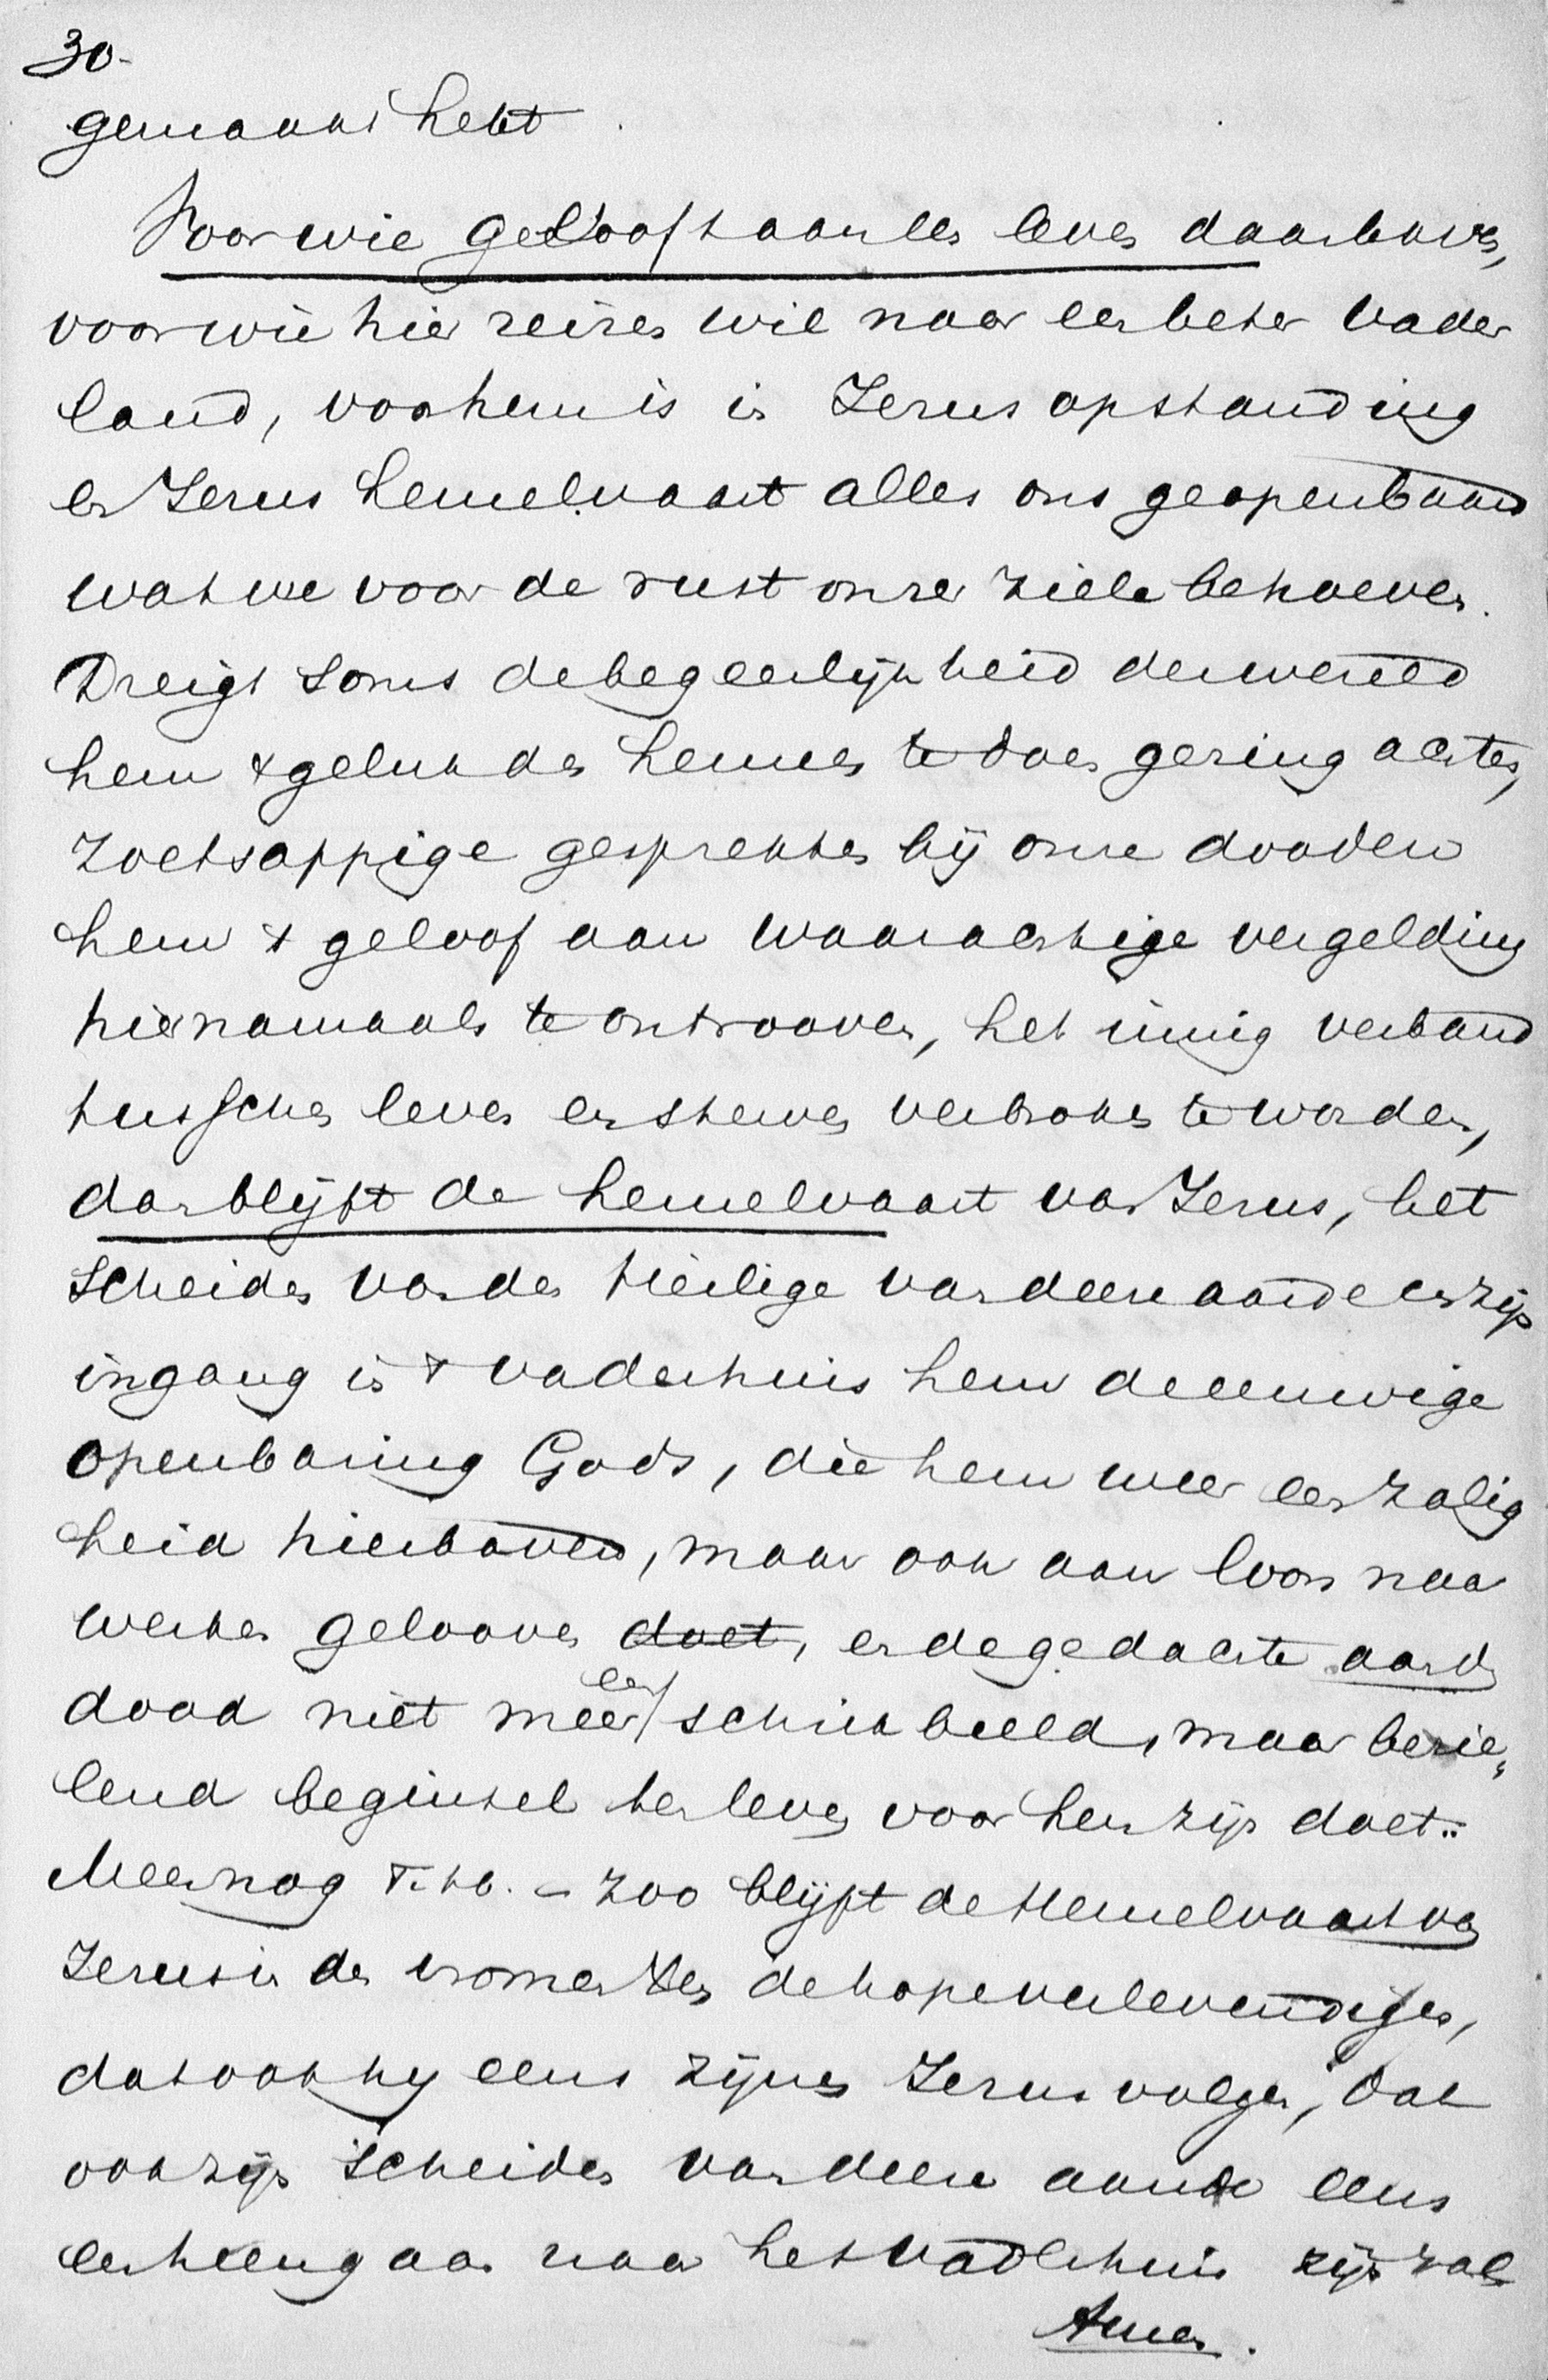 30.
gemaakt hebt.
Voor wie gelooft aan een leven daarboven,
voor wie hier reizen wil naar een beter vader
land, voor hem is in Jezus opstanding
en Jezus hemelvaart alles ons geopenbaard
wat we voor de rust onzer ziele behoeven.
Dreigt soms de begeerlijkheid der wereld
hem 't geluk des hemels te doen gering achten,
zoetsappige gesprekken bij onze dooden
hem 't geloof aan waarachtige vergelding
hiernamaals te ontrooven, het innig verband
tusschen leven en sterven verbroken te worden,
dan blijft de hemelvaart van Jezus, het
scheiden van den Heilige van deze aarde en zijn
ingang in 't vaderhuis hem de eeuwige
openbaring Gods, die hem weer een zalig
heid hierboven, maar ook aan loon naar
werken gelooven doet, en de gedachte aan den
dood niet meer een schrikbeeld, maar bezie„
lend beginsel ten leven voor hem zijn doet..
Meer nog T. h. - zoo blijft de Hemelvaart van
Jezus in den vrome de hope verlevendigen,
dat ook hij eens zijnen Jezus volgen, dat
ook zijn scheiden van deze aarde eens
een heengaan naar het vaderhuis zijn zal
Amen.